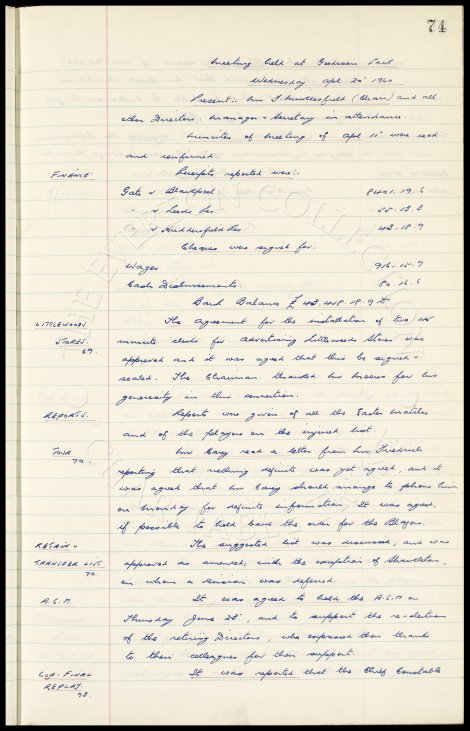 74
Meeting held at Goodison Park
Wednesday Apl 20th 1960
Present:- Mr F. Micklesfield (Chair) and all
other Directors. Manager & Secretary in attendance
Minutes of Meeting of Apl 11th were read
and confirmed.
FINANCE Receipts reported were:-
Gate v Blackpool 8401. 19. 6
" v Leeds Res 55. 13. 3
" v Huddersfield Res 43. 18. 9
Cheques were signed for:-
Wages 916. 15. 7
Cash Disbursements. 80. 16. 6
Bank Balance £ 43. 458. 18. 9
LITTLEWOODS The Agreement for the installation of two 45
STORES. minute clocks for advertising Littlewoods Stores was
69. approved and it was agreed that this be signed &
sealed. The Chairman thanked Mr Moores for his
generosity in this connection.
REPORTS. Reports were given of all the Easter Matches
and of the players on the injured list.
TOUR Mr Carey read a letter from Mr Friedrich
70 reporting that nothing definite was yet agreed, and it
was agreed that Mr Carey should arrange to phone him
on Monday for definite information, It was agreed,
if possible to hold back the order for the Blazers.
RETAIN & The suggested list was discussed, and was
TRANSFER LIST approved as amended, with the exception of Shackleton,
70. on whom a decision was deferred.
A.G.M. It was agreed to hold the A.G.M on
Thursday June 23rd, and to support the re-election
of the retiring Directors, who expressed their thanks
to their colleagues for their support.
CUP-FINAL It was reported that the Chief Constable
REPLAY
73.
THE EVERTON COLLECTION